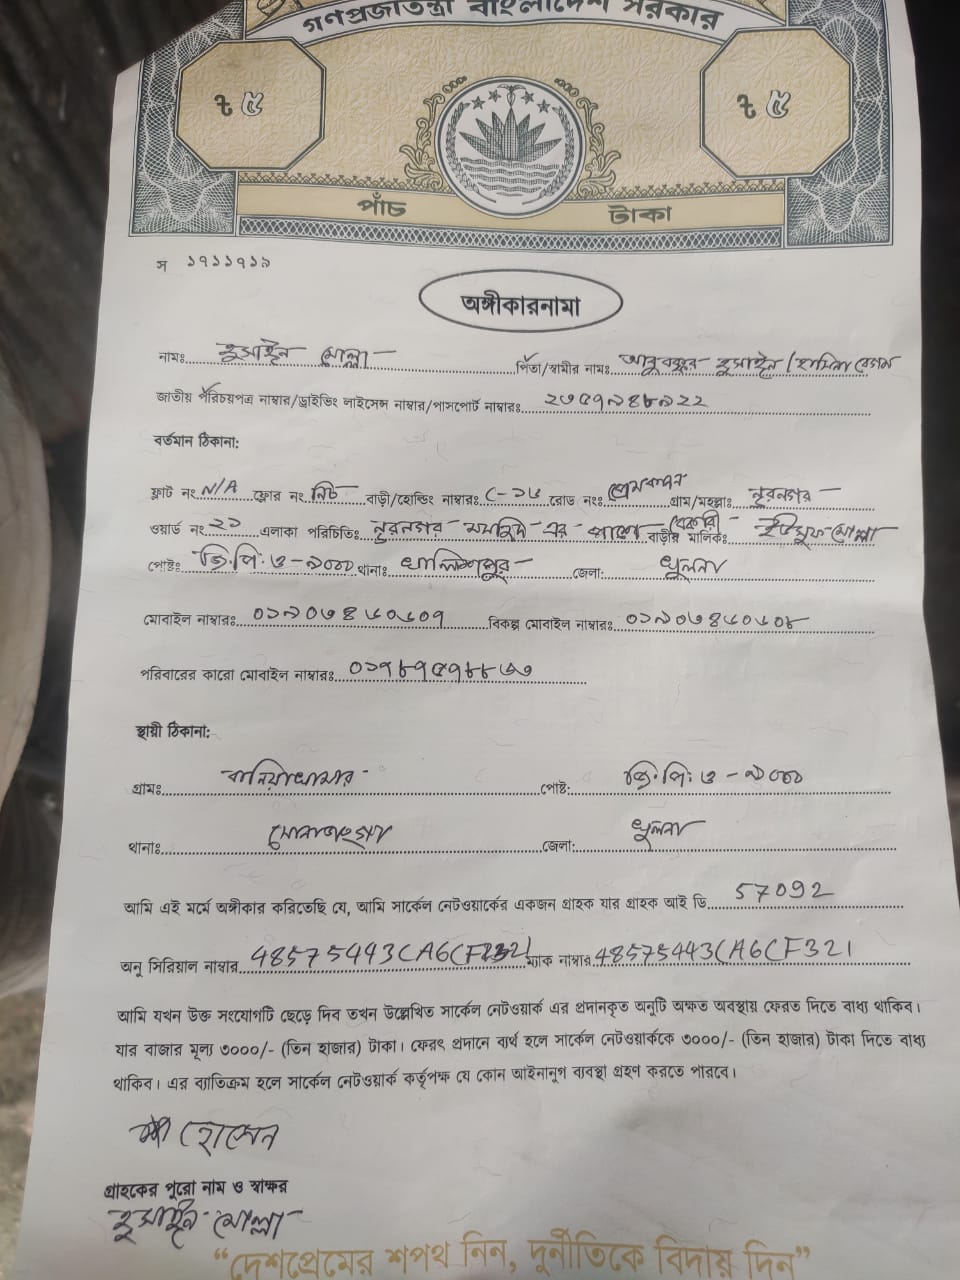 গণপ্রজাতন্ত্রী বাংলাদেশ সরকার
৳ ৫ ৳ ৫
পাঁচ টাকা
স ১৭১১৭১৯
অঙ্গীকারনামা
নামঃ হুসাইন মোল্লা পিতা/স্বামীর নামঃ আবু বক্কর হুসাইন / হামিনা বেগম
জাতীয় পরিচয়পত্র নাম্বার/ড্রাইভিং লাইসেন্স নাম্বার/পাসপোর্ট নাম্বারঃ ২৩৫৭৯৪৮৯২২
বর্তমান ঠিকানা:
ফ্লাট নং N/A ফ্লোর নং নিচ বাড়ী/হোল্ডিং নাম্বারঃ C-১৬ রোড নংঃ গ্রাম/মহল্লাঃ নুরনগর
ওয়ার্ড নং ২১ এলাকা পরিচিতিঃ নুরনগর মসজিদ এর পাশে বেকারী বাড়ীর মালিকঃ ইউসুফ মোল্লা
পোষ্টঃ জি.পি.ও - ৯০০০ থানাঃ খালিশপুর জেলা: খুলনা
মোবাইল নাম্বারঃ ০১৯০৬৪৬০৬০৭ বিকল্প মোবাইল নাম্বারঃ ০১৯০৬৪৬০৬০৮
পরিবারের কারো মোবাইল নাম্বারঃ ০১৭৮৭৫৭৮৮৬৩
স্থায়ী ঠিকানা:
গ্রামঃ বানিয়াখামার পোষ্ট: জি.পি.ও - ৯০০০
থানাঃ সোনাডাঙ্গা জেলা: খুলনা
আমি এই মর্মে অঙ্গীকার করিতেছি যে, আমি সার্কেল নেটওয়ার্কের একজন গ্রাহক যার গ্রাহক আই ডি 57092
অনু সিরিয়াল নাম্বার 48575443CA6CF321 ম্যাক নাম্বার 48575443CA6CF321
আমি যখন উক্ত সংযোগটি ছেড়ে দিব তখন উল্লেখিত সার্কেল নেটওয়ার্ক এর প্রদানকৃত অনুটি অক্ষত অবস্থায় ফেরত দিতে বাধ্য থাকিব।
যার বাজার মূল্য ৩০০০/- (তিন হাজার) টাকা। ফেরৎ প্রদানে ব্যর্থ হলে সার্কেল নেটওয়ার্ককে ৩০০০/- (তিন হাজার) টাকা দিতে বাধ্য
থাকিব। এর ব্যতিক্রম হলে সার্কেল নেটওয়ার্ক কর্তৃপক্ষ যে কোন আইনানুগ ব্যবস্থা গ্রহণ করতে পারবে।
হোসেন
গ্রাহকের পুরো নাম ও স্বাক্ষর
হুসাইন মোল্লা
“দেশপ্রেমের শপথ নিন, দুর্নীতিকে বিদায় দিন”